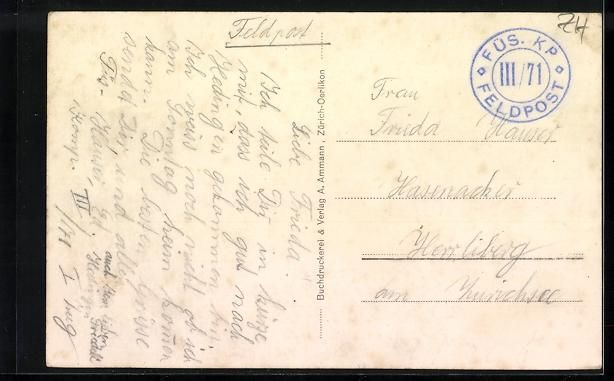 Feldpost
Liebe Frieda.
Ich teile Dir in kürze
mit, das ich gut nach
Hedingen gekommen bin.
Ich weis noch nicht ob ich
am Sonntag heim komen
kann. Die besten Grüsse
sendet Dir und alle
Füs. Hauser
Komp. III
1/71 I Zug
auch
Buchdruckerei & Verlag A. Ammann, Zürich-Oerlikon
ZH
FÜS. KP.
III/71
FELDPOST
Frau
Frieda Hauser
Hasenacker
Herrliberg
am Zürichsee